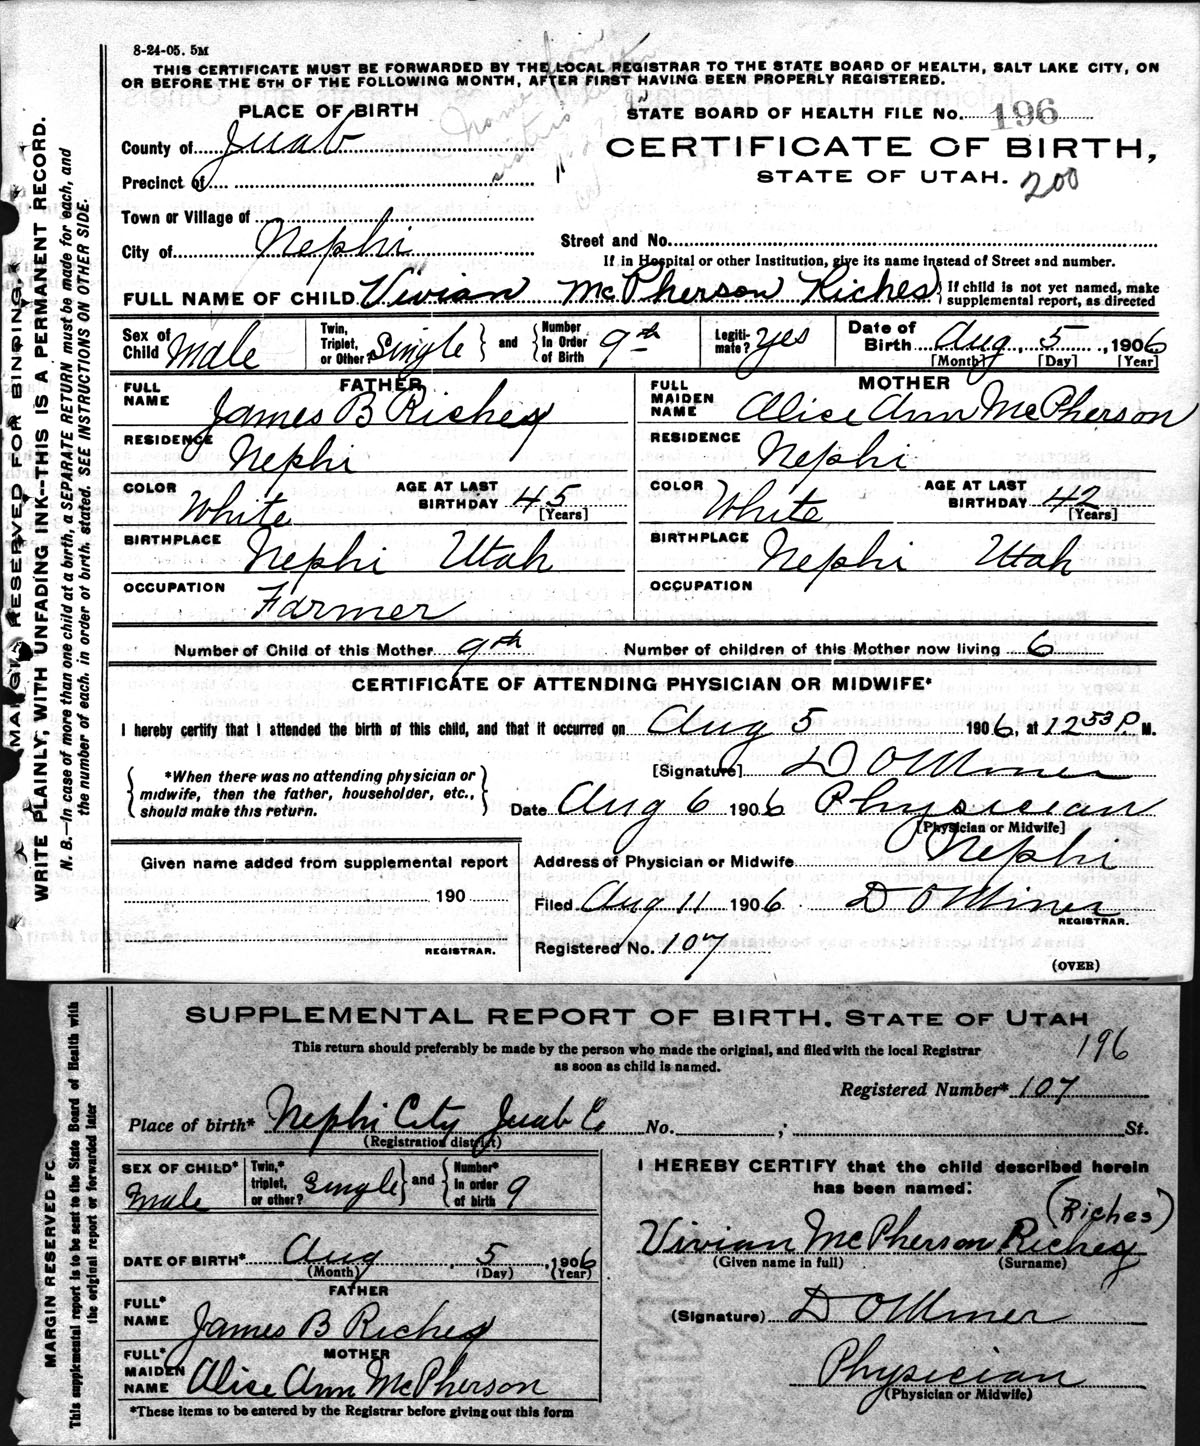 8-24-05. 5M
THIS CERTIFICATE MUST BE FORWARDED BY THE LOCAL REGISTRAR TO THE STATE BOARD OF HEALTH, SALT LAKE CITY, ON
OR BEFORE THE 5TH OF THE FOLLOWING MONTH, AFTER FIRST HAVING BEEN PROPERLY REGISTERED.
PLACE OF BIRTH
STATE BOARD OF HEALTH FILE No. 196
County of Juab
CERTIFICATE OF BIRTH,
Precinct of
STATE OF UTAH. 200
Town or Village of
City of Nephi
Street and No.
If in Hospital or other Institution, give its name instead of Street and number.
FULL NAME OF CHILD Vivian McPherson Riches } If child is not yet named, make supplemental report, as directed
Sex of Child Male Twin, Triplet, or Other? Single } and { Number In Order of Birth 9th Legiti-mate? yes Date of Birth Aug, 5, 1906
[Month] [Day] [Year]
FATHER MOTHER
FULL NAME James B Riches FULL MAIDEN NAME Alice Ann McPherson
RESIDENCE Nephi RESIDENCE Nephi
COLOR White AGE AT LAST BIRTHDAY 45 [Years] COLOR White AGE AT LAST BIRTHDAY 42 [Years]
BIRTHPLACE Nephi Utah BIRTHPLACE Nephi Utah
OCCUPATION Farmer OCCUPATION
Number of Child of this Mother 9th Number of children of this Mother now living 6
CERTIFICATE OF ATTENDING PHYSICIAN OR MIDWIFE*
I hereby certify that I attended the birth of this child, and that it occurred on Aug 5 1906, at 12 53 P. M.
[Signature] D O Miner
{ *When there was no attending physician or midwife, then the father, householder, etc., should make this return. }
Date Aug 6 1906 Physician
[Physician or Midwife]
Given name added from supplemental report
Address of Physician or Midwife Nephi
190
Filed Aug 11 1906 D O Miner
REGISTRAR.
REGISTRAR.
Registered No. 107
(OVER)
MARGIN RESERVED FOR BINDING.
WRITE PLAINLY, WITH UNFADING INK--THIS IS A PERMANENT RECORD.
N. B.—In case of more than one child at a birth, a SEPARATE RETURN must be made for each, and
the number of each, in order of birth, stated. SEE INSTRUCTIONS ON OTHER SIDE.
SUPPLEMENTAL REPORT OF BIRTH. STATE OF UTAH
This return should preferably be made by the person who made the original, and filed with the local Registrar
as soon as child is named.
196
Registered Number* 107
Place of birth* Nephi City Juab Co No. ; St.
(Registration district)
SEX OF CHILD* Male Twin,* triplet, or other? Single } and { Number* in order of birth 9
I HEREBY CERTIFY that the child described herein
has been named:
(Riches)
Vivian McPherson Riches
(Given name in full) (Surname)
DATE OF BIRTH* Aug 5, 1906
(Month) (Day) (Year)
FATHER
FULL* NAME James B Riches
(Signature) D O Miner
MOTHER
FULL* MAIDEN NAME Alice Ann McPherson
Physician
(Physician or Midwife)
*These items to be entered by the Registrar before giving out this form
MARGIN RESERVED FO
This supplemental report is to be sent to the State Board of Health with
the original report or forwarded later